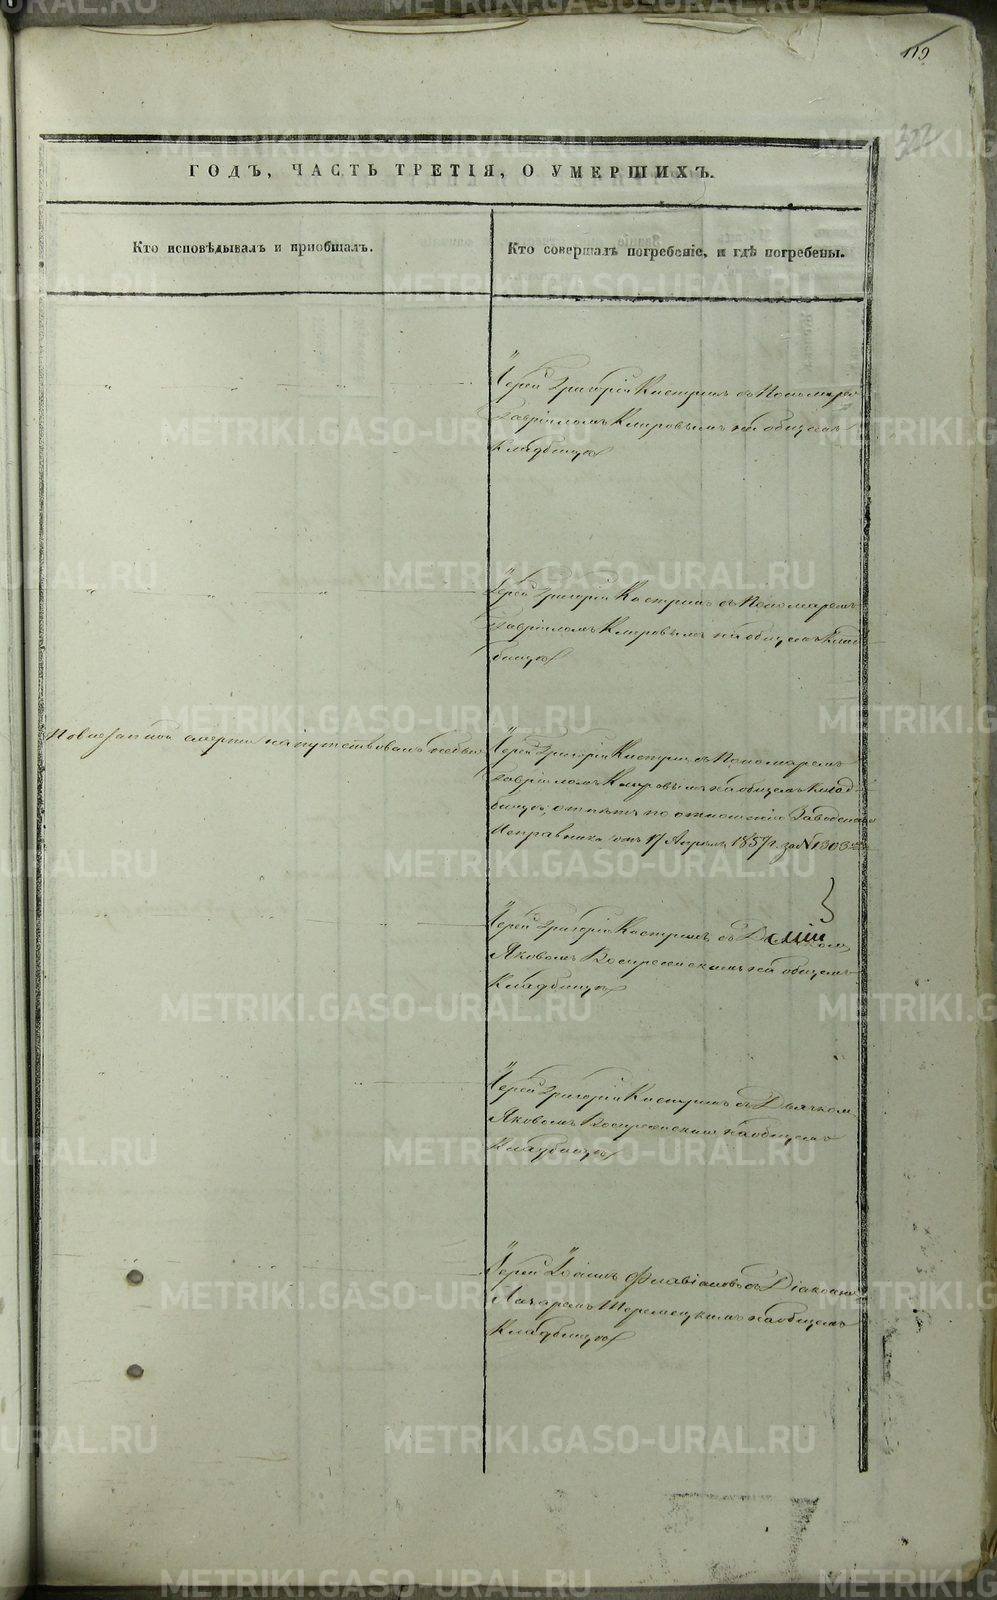 119
322
ГОДЪ, ЧАСТЬ ТРЕТІЯ, О УМЕРШИХЪ.
Кто исповѣдывалъ и приобщалъ.
Кто совершалъ погребеніе, и гдѣ погребены.
Іерей Григорій Кастринъ съ Пономаремъ
Гавріиломъ Кировымъ на общемъ
Кладбищѣ
Іерей Григорій Кастринъ съ Пономаремъ
Гавріиломъ Кировымъ на общемъ Клад-
бищѣ
По внезапной смерти напутствованъ не былъ
Іерей Григорій Кастринъ съ Пономаремъ
Гавріиломъ Кировымъ на общемъ Клад-
бищѣ, отпѣтъ по отношенію Заводскаго
Исправника отъ 17 Апрѣля 1857 г. за № 1303
Іерей Григорій Кастринъ съ
Яковомъ Воскресенскимъ на общемъ
Кладбищѣ
Іерей Григорій Кастринъ съ Дьячкомъ
Яковомъ Воскресенскимъ на общемъ
Кладбищѣ
Іерей Іоаннъ Флавіановъ съ Діакономъ
на общемъ
Кладбищѣ
METRIKI.GASO-URAL.RU